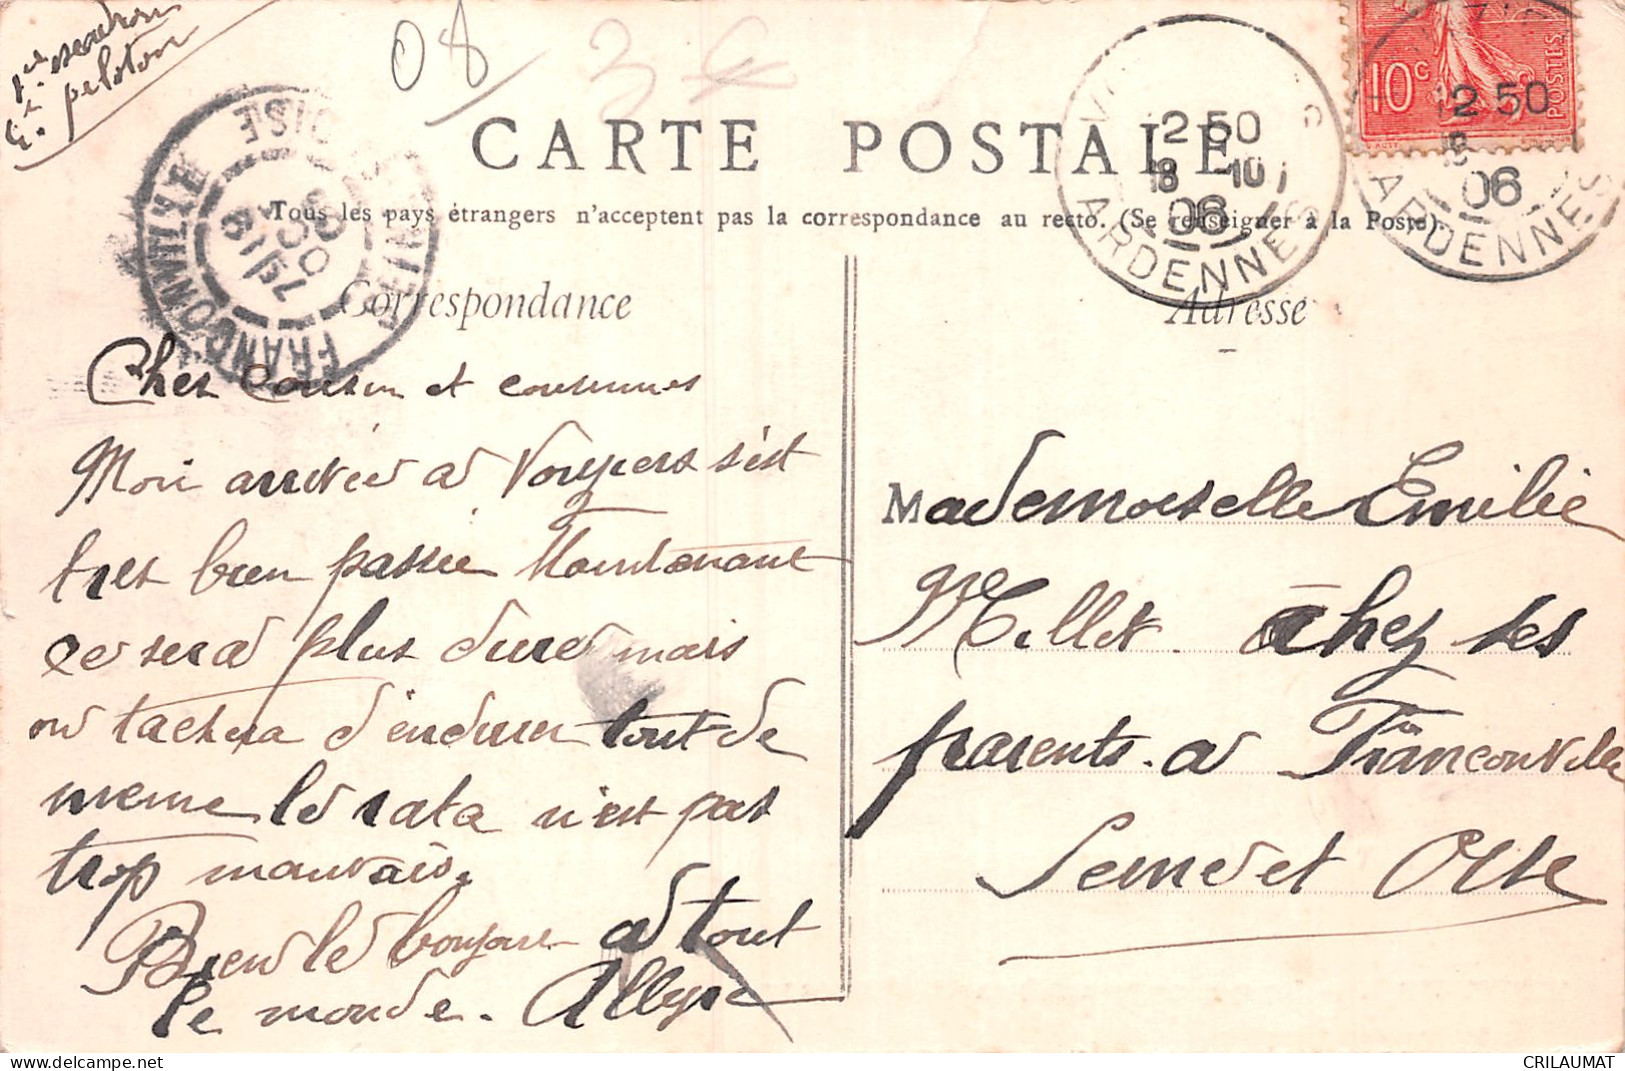 1er escadron
4e peloton
08
CARTE POSTALE
Tous les pays étrangers n'acceptent pas la correspondance au recto. (Se renseigner à la Poste).
10c
POSTES
2 50
18 -10
06
ARDENNES
2 50
06
ARDENNES
FRANCONVILLE
Correspondance
Adresse
Cher Cousin et cousinnes
Mon arrivée a Vouziers s'est
tres bien passée Maintenant
ce sera plus dure mais
on tachera d'endurer tout de
meme le rata n'est pas
trop mauvais.
Bien le bonjour a tout
le monde.
Mademoiselle Emilie
Millet chez ses
parents a Franconville
Seine et Oise
CRILAUMAT